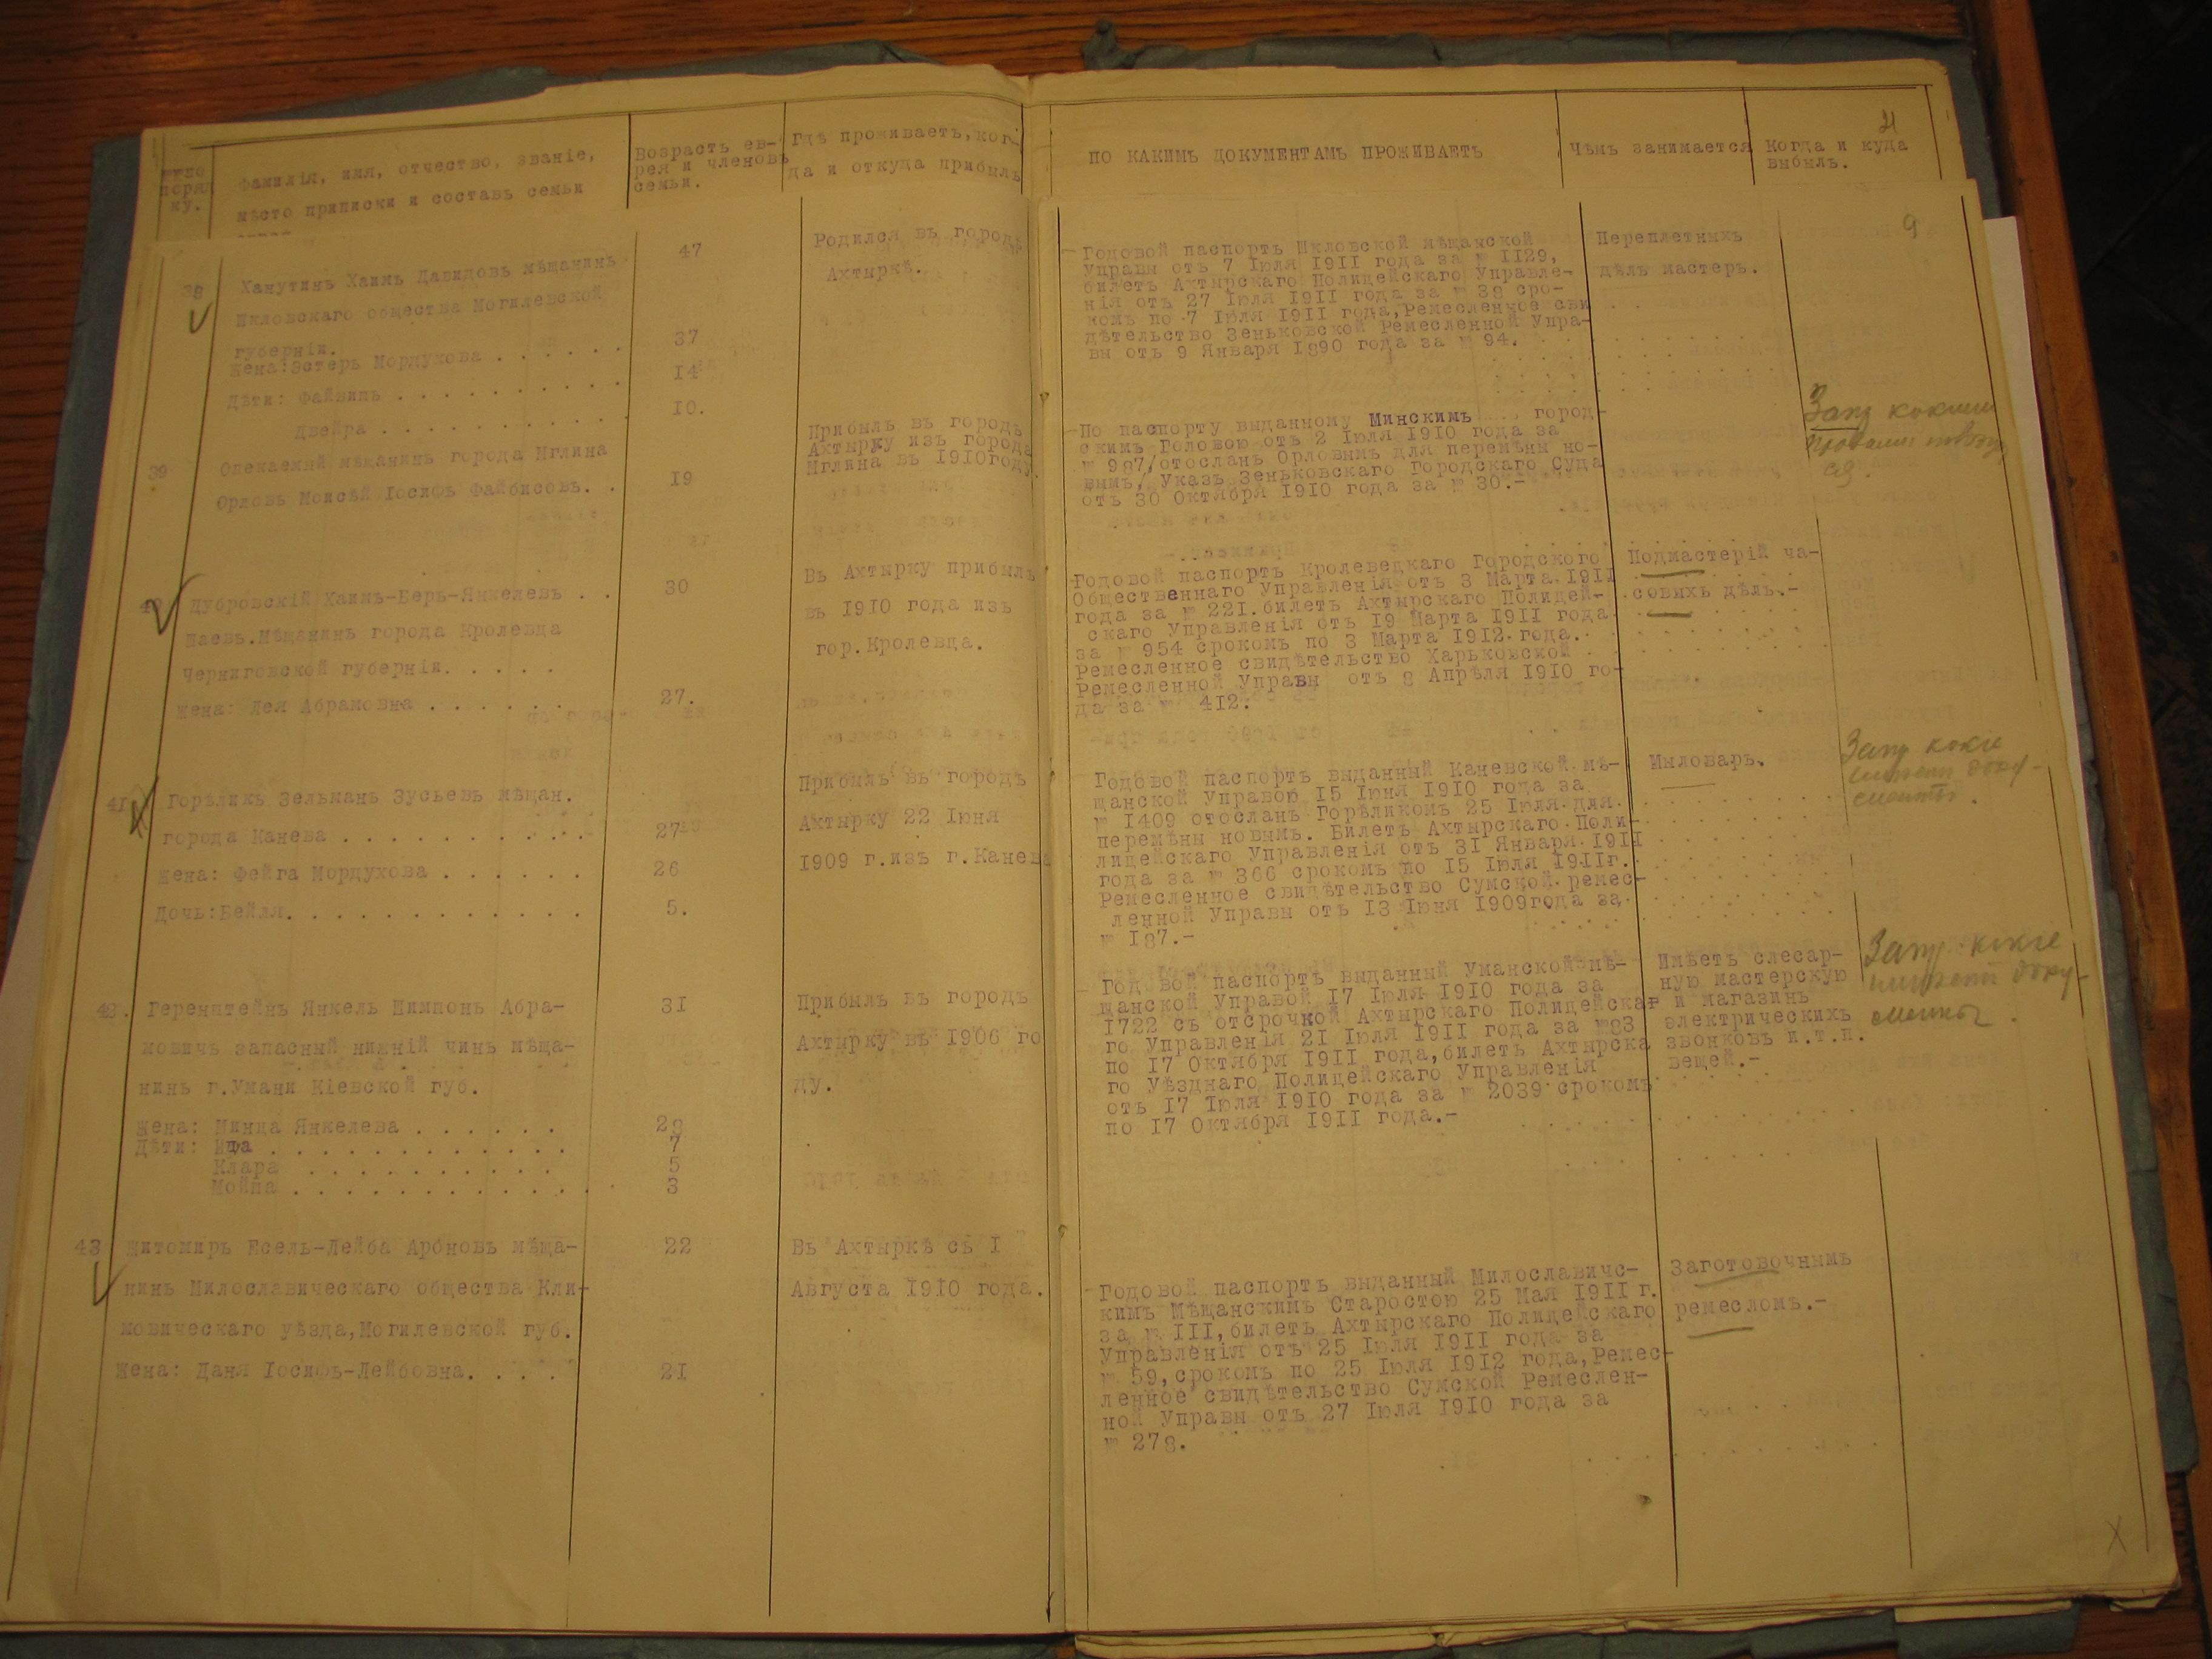 №№ по
поряд
ку.
Фамилія, имя, отчество, званіе,
мѣсто приписки и составъ семьи
Возрастъ ев-
рея и членовъ
семьи.
Гдѣ проживаетъ, ког-
да и откуда прибылъ
ПО КАКИМЪ ДОКУМЕНТАМЪ ПРОЖИВАЕТЪ
Чѣмъ занимается
Когда и куда
выбылъ.
21
9
38
Ханутинъ Хаимъ Давидовъ мѣщанинъ
Шкловскаго общества Могилевской
губерніи.
Жена: Эстеръ Мордухова . . . . . .
Дѣти: Файвишъ . . . . . . . . . .
Двейра . . . . . . . . . . .
47
37
14
10.
Родился въ городѣ
Ахтыркѣ.
Годовой паспортъ Шкловской мѣщанской
Управы отъ 7 Іюля 1911 года за № 1129,
билетъ Ахтырскаго Полицейскаго Управле-
нія отъ 27 Іюля 1911 года за № 38 сро-
комъ по 7 Іюля 1911 года, Ремесленное сви
дѣтельство Зеньковской Ремесленной Упра-
вы отъ 9 Января 1890 года за № 94.
Переплетныхъ
дѣлъ мастеръ.
39
Опекаемый мѣщанинъ города Мглина
Орловъ Моисѣй Іосифъ Файбисовъ. .
19
Прибылъ въ городъ
Ахтырку изъ города
Мглина въ 1910году.
По паспорту выданному Минскимъ . . город-
скимъ Головою отъ 2 Іюля 1910 года за
№ 987/отосланъ Орловымъ для перемѣны но-
вымъ/ Указъ Зеньковскаго Городскаго Суда
отъ 30 Октября 1910 года за № 30.-
40
Дубровскій Хаимъ-Беръ-Янкелевъ . .
шаевъ.Мѣщанинъ города Кролевца
Черниговской губерніи. . . . .
Жена: Лея Абрамовна . . . . . .
30
27.
Въ Ахтырку прибылъ
въ 1910 года изъ
гор.Кролевца.
Годовой паспортъ Кролевецкаго Городского
Общественнаго Управленія отъ 3 Марта 1911
года за № 221. билетъ Ахтырскаго Полицей-
скаго Управленія отъ 19 Марта 1911 года
за № 954 срокомъ по 3 Марта 1912 года.
Ремесленное свидѣтельство Харьковской
Ремесленной Управы отъ 8 Апрѣля 1910 го-
да за № 412.
Подмастерій ча-
совыхъ дѣлъ.-
41
Горѣликъ Зельманъ Зусьевъ мѣщан.
города Канева . . . . . . . . . . .
Жена: Фейга Мордухова . . . . . .
Дочь:Бейля. . . . . . . . . . . . .
27
26
5.
Прибылъ въ городъ
Ахтырку 22 Іюня
1909 г.изъ г.Канева
Годовой паспортъ выданный Каневской мѣ-
щанской Управою 15 Іюня 1910 года за
№ 1409 отосланъ Горѣликомъ 25 Іюля для
перемѣны новымъ. Билетъ Ахтырскаго Поли-
лицейскаго Управленія отъ 31 Января 1911
года за № 366 срокомъ по 15 Іюля 1911г.
Ремесленное свидѣтельство Сумской ремес-
ленной Управы отъ 13 Іюня 1909года за
№ 187.-
Мыловаръ.
42.
Геренштейнъ Янкель Шимпонъ Абра-
мовичъ запасный нижній чинъ мѣща-
нинъ г.Умани Кіевской губ.
Жена: Минца Янкелева . . . . . .
Дѣти: . . . . . . . . . . . . .
Клара . . . . . . . . . . .
Мойна . . . . . . . . . . . . .
31
29
7
5
3
Прибылъ въ городъ
Ахтырку въ 1906 го
ду.
Годовой паспортъ выданный Уманской мѣ-
щанской Управой 17 Іюля 1910 года за
1722 съ отсрочкой Ахтырскаго Полицейска-
го Управленія 21 Іюля 1911 года за №93
по 17 Октября 1911 года,билетъ Ахтырска
го Уѣзднаго Полицейскаго Управленія
отъ 17 Іюля 1910 года за № 2039 срокомъ
по 17 Октября 1911 года.-
Имѣетъ слесар-
ную мастерскую
и магазинъ
электрическихъ
звонковъ и.т.п.
вещей.-
43
Житомиръ Есель-Лейба Ароновъ мѣща-
нинъ Милославическаго общества Кли-
мовическаго уѣзда,Могилевской губ.
Жена: Даня Іосифъ-Лейбовна. . . . .
22
21
Въ Ахтыркѣ съ 1
Августа 1910 года.
Годовой паспортъ выданный Милославичс-
кимъ Мѣщанскимъ Старостою 25 Мая 1911 г.
за № 111,билетъ Ахтырскаго Полицейскаго
Управленія отъ 25 Іюля 1911 года за
№ 59,срокомъ по 25 Іюля 1912 года,Ремес-
ленное свидѣтельство Сумской Ремеслен-
ной Управы отъ 27 Іюля 1910 года за
№ 278.
Заготовочнымъ
ремесломъ.-